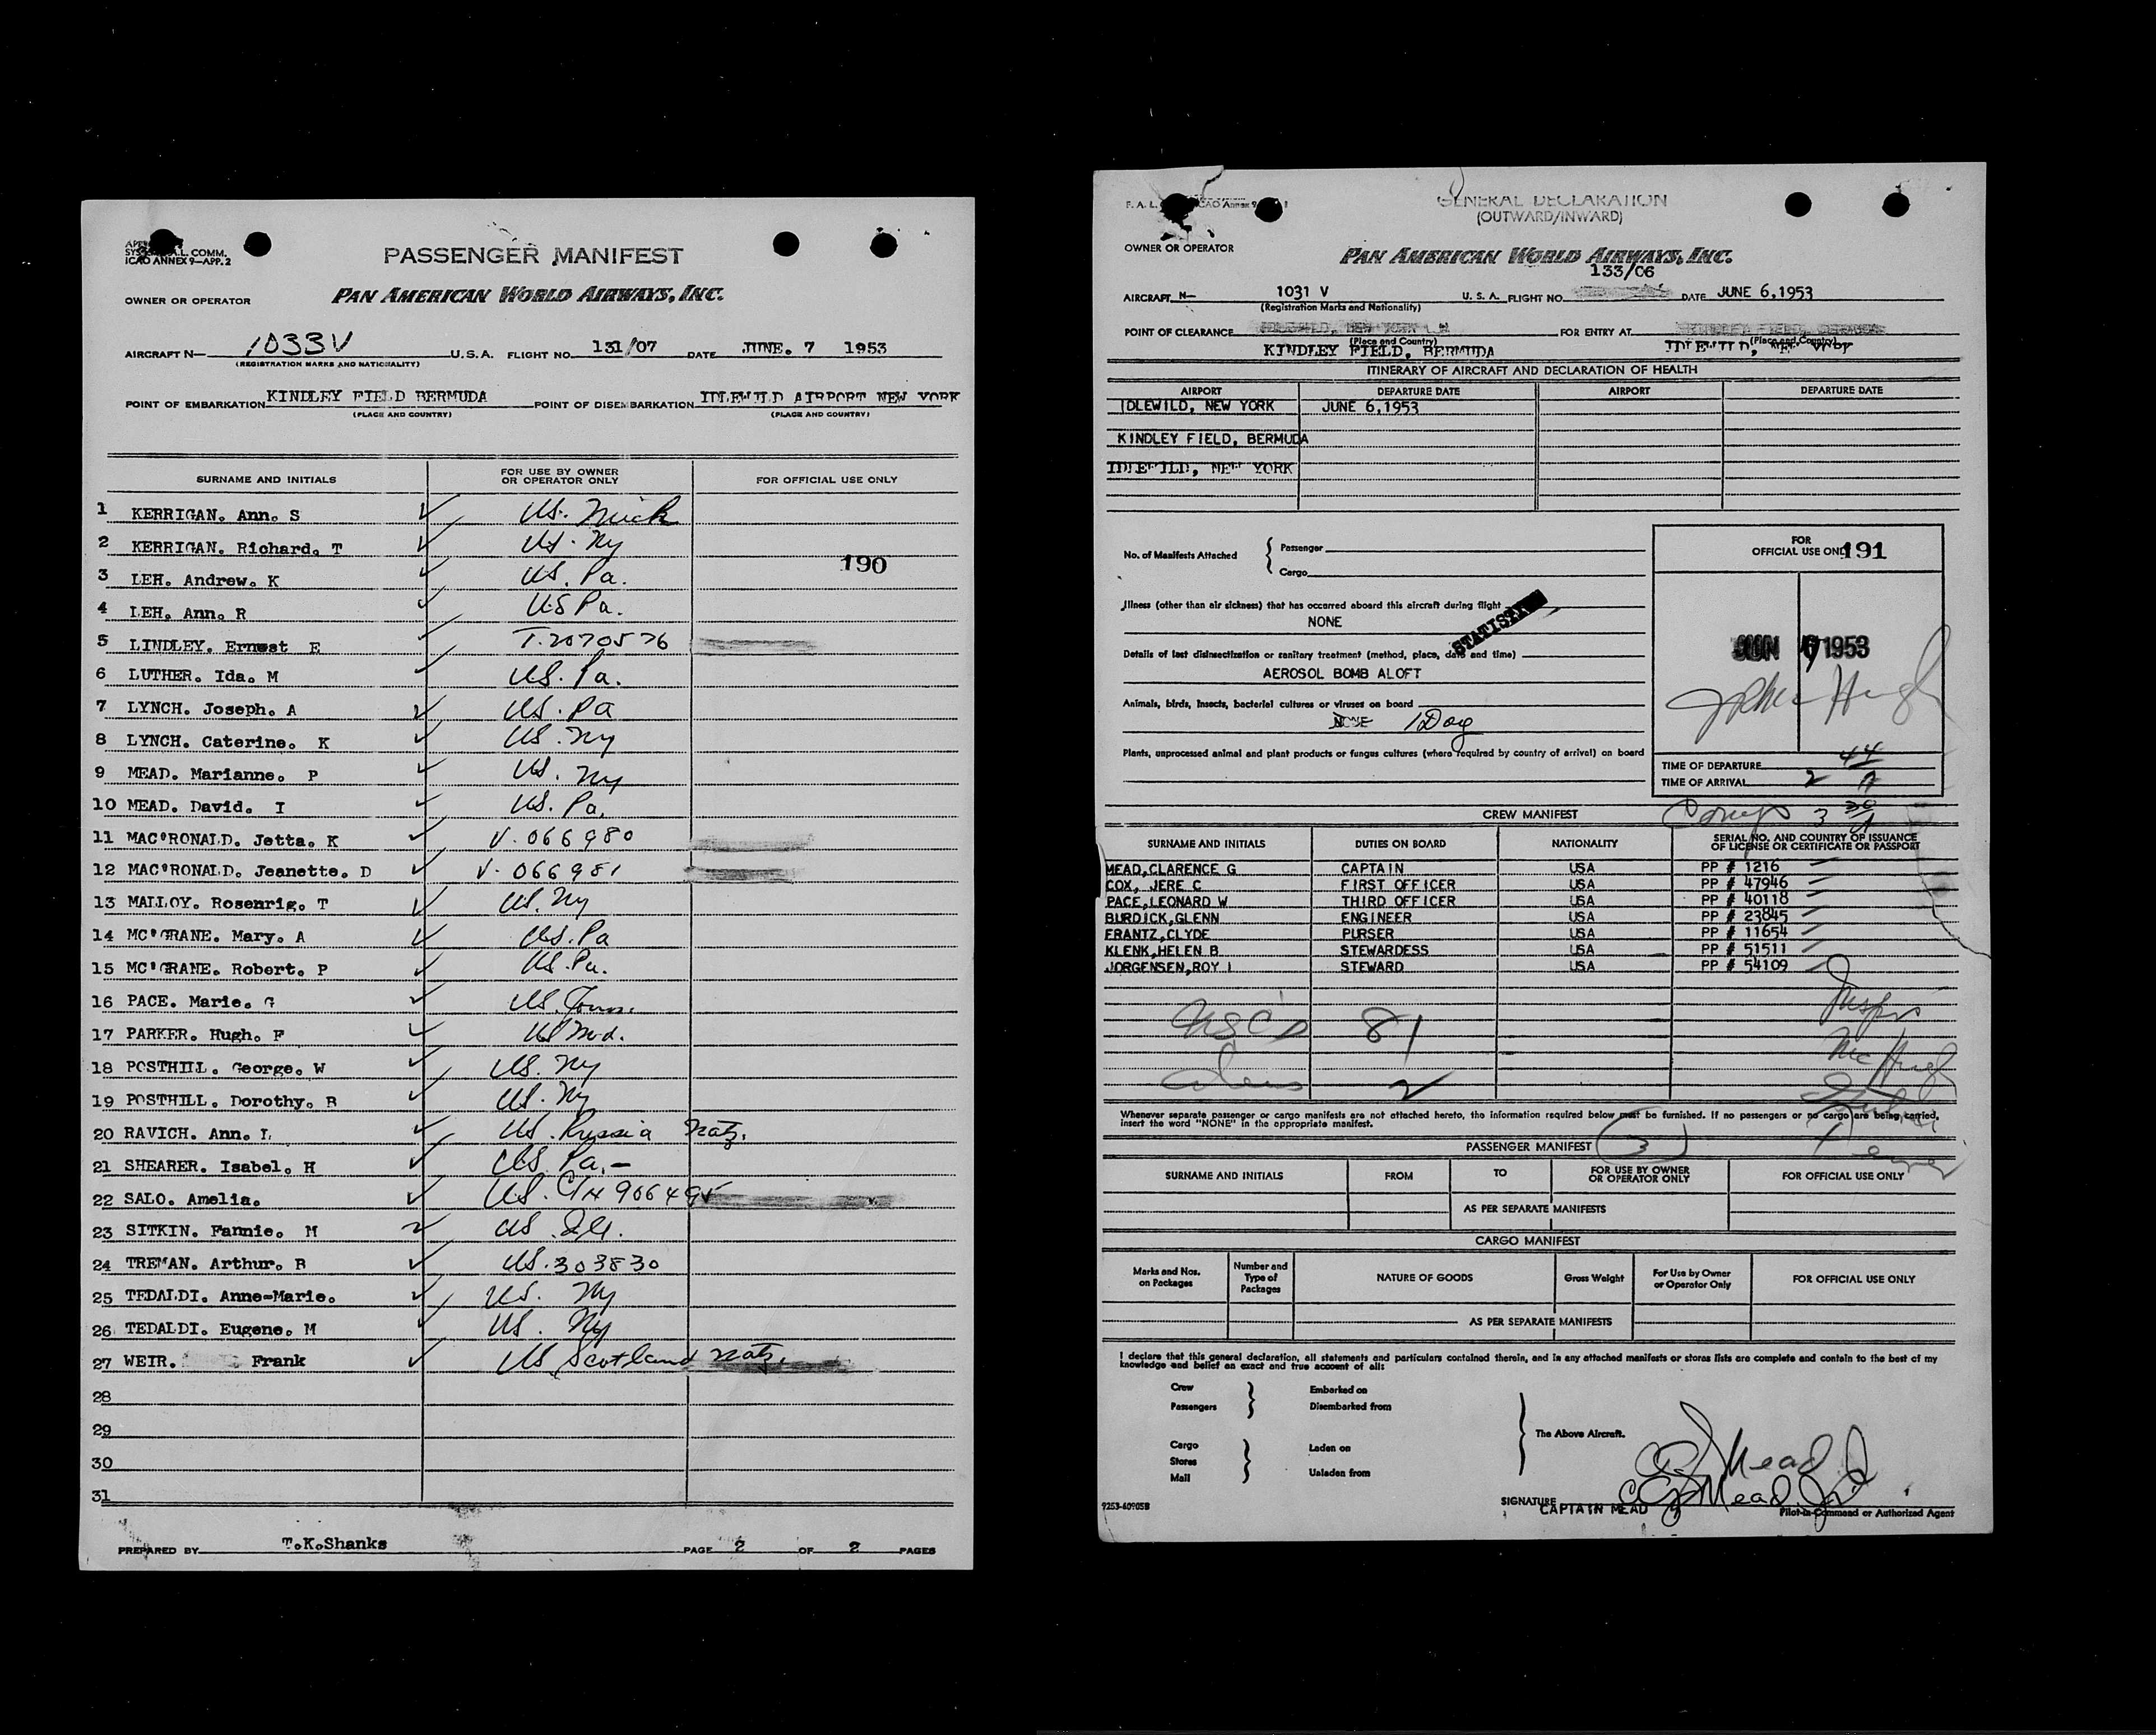 SYS F.A.L. COMM.
ICAO ANNEX 9—APP. 2
PASSENGER MANIFEST
OWNER OR OPERATOR PAN AMERICAN WORLD AIRWAYS, INC.
AIRCRAFT N— 1033V U.S.A. FLIGHT NO. 131/07 DATE JUNE. 7 1953
(REGISTRATION MARKS AND NATIONALITY)
POINT OF EMBARKATION KINDLEY FIELD BERMUDA POINT OF DISEMBARKATION IDLEWILD AIRPORT NEW YORK
(PLACE AND COUNTRY) (PLACE AND COUNTRY)
SURNAME AND INITIALS FOR USE BY OWNER OR OPERATOR ONLY FOR OFFICIAL USE ONLY
1 KERRIGAN. Ann. S US. Mich
2 KERRIGAN. Richard. T US. Ny
190
3 LEH. Andrew. K US. Pa.
4 LEH. Ann. R US Pa.
5 LINDLEY. Ernest E T.2070576
6 LUTHER. Ida. M US. Pa.
7 LYNCH. Joseph. A US. Pa
8 LYNCH. Caterine. K US. Ny
9 MEAD. Marianne. P US. Ny
10 MEAD. David. I US. Pa.
11 MAC'RONALD. Jetta. K V. 066980
12 MAC'RONALD. Jeanette. D V. 066981
13 MALLOY. Rosenrig. T US. Ny
14 MC'GRANE. Mary. A US. Pa
15 MC'GRANE. Robert. P US. Pa.
16 PACE. Marie. G US.
17 PARKER. Hugh. F US Md.
18 POSTHILL. George. W US. Ny
19 POSTHILL. Dorothy. B US. Ny
20 RAVICH. Ann. L US. Russia Natz.
21 SHEARER. Isabel. H US Pa. —
22 SALO. Amelia. US. 906495
23 SITKIN. Fannie. M US. Ill.
24 TREMAN. Arthur. R US. 303830
25 TEDALDI. Anne-Marie. US. Ny
26 TEDALDI. Eugene. M US. Ny
27 WEIR. Frank US Scotland Natz.
28
29
30
31
PREPARED BY T.K.Shanks PAGE 2 OF 2 PAGES
F. A. L. ICAO Annex 9
GENERAL DECLARATION
(OUTWARD/INWARD)
OWNER OR OPERATOR PAN AMERICAN WORLD AIRWAYS, INC.
133/06
AIRCRAFT N— 1031 V U. S. A. FLIGHT NO. DATE JUNE 6,1953
(Registration Marks and Nationality)
POINT OF CLEARANCE FOR ENTRY AT
(Place and Country) (Place and Country)
KINDLEY FIELD, BERMUDA IDLEWILD, NEW YORK
ITINERARY OF AIRCRAFT AND DECLARATION OF HEALTH
AIRPORT DEPARTURE DATE AIRPORT DEPARTURE DATE
IDLEWILD, NEW YORK JUNE 6,1953
KINDLEY FIELD, BERMUDA
IDLEWILD, NEW YORK
No. of Manifests Attached { Passenger
Cargo
FOR OFFICIAL USE ONLY 191
Illness (other than air sickness) that has occurred aboard this aircraft during flight
NONE
STATISTICS
Details of last disinsectization or sanitary treatment (method, place, date and time)
AEROSOL BOMB ALOFT
JUN 1953
Animals, birds, insects, bacterial cultures or viruses on board
NONE 1 Dog
Plants, unprocessed animal and plant products or fungus cultures (where required by country of arrival) on board
TIME OF DEPARTURE
TIME OF ARRIVAL 2 44 A
CREW MANIFEST
Comp 3 30 A
SURNAME AND INITIALS DUTIES ON BOARD NATIONALITY SERIAL NO. AND COUNTRY OF ISSUANCE OF LICENSE OR CERTIFICATE OR PASSPORT
MEAD,CLARENCE G CAPTAIN USA PP # 1216
COX, JERE C FIRST OFFICER USA PP # 47946
PACE,LEONARD W THIRD OFFICER USA PP # 40118
BURDICK,GLENN ENGINEER USA PP # 23845
FRANTZ,CLYDE PURSER USA PP # 11654
KLENK,HELEN B STEWARDESS USA PP # 51511
JORGENSEN,ROY I STEWARD USA PP # 54109
USC 81
Insprs
McHugh
aliens 2
Whenever separate passenger or cargo manifests are not attached hereto, the information required below must be furnished. If no passengers or no cargo are being carried,
insert the word "NONE" in the appropriate manifest.
PASSENGER MANIFEST 3
SURNAME AND INITIALS FROM TO FOR USE BY OWNER OR OPERATOR ONLY FOR OFFICIAL USE ONLY
AS PER SEPARATE MANIFESTS
CARGO MANIFEST
Marks and Nos. on Packages Number and Type of Packages NATURE OF GOODS Gross Weight For Use by Owner or Operator Only FOR OFFICIAL USE ONLY
AS PER SEPARATE MANIFESTS
I declare that this general declaration, all statements and particulars contained therein, and in any attached manifests or stores lists are complete and contain to the best of my
knowledge and belief an exact and true account of all:
Crew Embarked on
Passengers Disembarked from
The Above Aircraft.
Cargo Laden on
Stores
Mail Unladen from
C G Mead Jr
C G Mead Jr
SIGNATURE CAPTAIN MEAD
Pilot-in-Command or Authorized Agent
9253-60905B